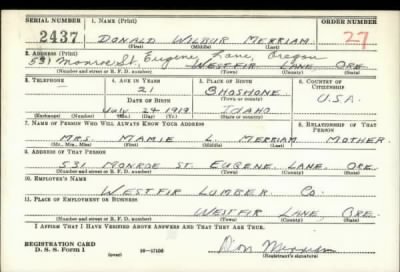 SERIAL NUMBER 1. NAME (Print) ORDER NUMBER
2437 DONALD WILBUR MERRIAM 27
(First) (Middle) (Last)
2. ADDRESS (Print)
531 Monroe St. Eugene, Lane, Oregon
WESTFIR LANE ORE.
(Number and street or R. F. D. number) (Town) (County) (State)
3. TELEPHONE 4. AGE IN YEARS 5. PLACE OF BIRTH 6. COUNTRY OF CITIZENSHIP
21 SHOSHONE
DATE OF BIRTH (Town or county) U.S.A.
July 24 1919 IDAHO
(Exchange) (Number) (Mo.) (Day) (Yr.) (State or country)
7. NAME OF PERSON WHO WILL ALWAYS KNOW YOUR ADDRESS 8. RELATIONSHIP OF THAT PERSON
MRS. MAMIE L. MERRIAM MOTHER
(Mr., Mrs., Miss) (First) (Middle) (Last)
9. ADDRESS OF THAT PERSON
531 MONROE ST. EUGENE LANE, ORE.
(Number and street or R. F. D. number) (Town) (County) (State)
10. EMPLOYER'S NAME
WESTFIR LUMBER Co.
11. PLACE OF EMPLOYMENT OR BUSINESS
WESTFIR LANE, ORE.
(Number and street or R. F. D. number) (Town) (County) (State)
I AFFIRM THAT I HAVE VERIFIED ABOVE ANSWERS AND THAT THEY ARE TRUE.
REGISTRATION CARD
D. S. S. Form 1 (over) Don Merriam
(Registrant's signature)